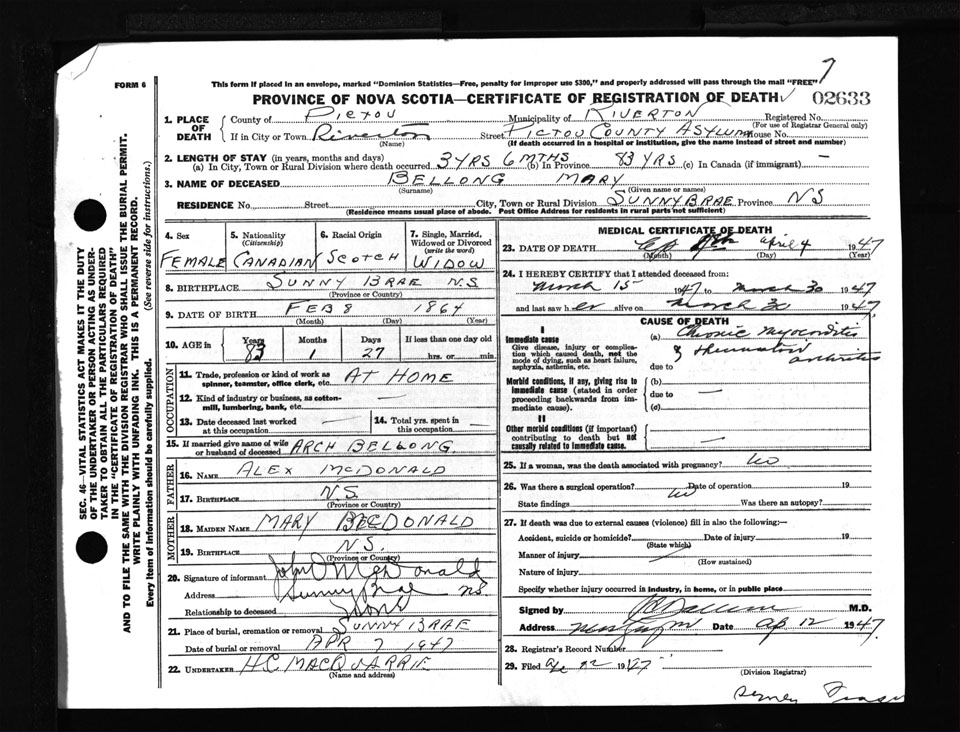 7
FORM 6
This form if placed in an envelope, marked "Dominion Statistics—Free, penalty for improper use $300," and properly addressed will pass through the mail "FREE"
PROVINCE OF NOVA SCOTIA—CERTIFICATE OF REGISTRATION OF DEATH 02633
1. PLACE OF DEATH
County of PICTOU Municipality of RIVERTON Registered No.
(For use of Registrar General only)
If in City or Town Riverton Street PICTOU COUNTY ASYLUM House No.
(Name) (If death occurred in a hospital or institution, give the name instead of street and number)
2. LENGTH OF STAY (in years, months and days)
(a) In City, Town or Rural Division where death occurred 3 YRS 6 MTHS (b) In Province 83 YRS (c) In Canada (if immigrant) —
3. NAME OF DECEASED BELLONG MARY
(Surname) (Given name or names)
RESIDENCE No. Street City, Town or Rural Division SUNNYBRAE Province NS
(Residence means usual place of abode. Post Office Address for residents in rural parts not sufficient)
4. Sex
FEMALE
5. Nationality
(Citizenship)
CANADIAN
6. Racial Origin
SCOTCH
7. Single, Married, Widowed or Divorced
(write the word)
WIDOW
8. BIRTHPLACE SUNNY BRAE N.S.
(Province or Country)
9. DATE OF BIRTH FEB 8 1864
(Month) (Day) (Year)
10. AGE in Years 83 Months 1 Days 27 If less than one day old
hrs. or min.
OCCUPATION
11. Trade, profession or kind of work as spinner, teamster, office clerk, etc. AT HOME
12. Kind of industry or business, as cotton-mill, lumbering, bank, etc. —
13. Date deceased last worked at this occupation —
14. Total yrs. spent in this occupation —
15. If married give name of wife or husband of deceased ARCH BELLONG.
FATHER
16. NAME ALEX McDONALD
17. BIRTHPLACE N.S.
(Province or Country)
MOTHER
18. MAIDEN NAME MARY McDONALD
19. BIRTHPLACE N.S.
(Province or Country)
20. Signature of informant John D McDonald
Address Sunny Brae NS
Relationship to deceased
21. Place of burial, cremation or removal SUNNY BRAE
Date of burial or removal APR 7 1947
22. UNDERTAKER H.C. MACQUARRIE
(Name and address)
MEDICAL CERTIFICATE OF DEATH
23. DATE OF DEATH April 4 1947
(Month) (Day) (Year)
24. I HEREBY CERTIFY that I attended deceased from:
March 15 1947 to March 30 1947
and last saw her alive on March 30 1947
CAUSE OF DEATH
I
Immediate cause
Give disease, injury or complication which caused death, not the mode of dying, such as heart failure, asphyxia, asthenia, etc.
(a) Chronic myocarditis
& rheumatoid arthritis
due to
Morbid conditions, if any, giving rise to immediate cause (stated in order proceeding backwards from immediate cause).
(b)
due to —
(c)
II
Other morbid conditions (if important) contributing to death but not causally related to immediate cause. —
25. If a woman, was the death associated with pregnancy? no
26. Was there a surgical operation? no Date of operation 19
State findings Was there an autopsy?
27. If death was due to external causes (violence) fill in also the following:—
Accident, suicide or homicide? Date of injury 19
(State which)
Manner of injury
(How sustained)
Nature of injury
Specify whether injury occurred in industry, in home, or in public place
Signed by M.D.
Address Date Ap 12 1947
28. Registrar's Record Number
29. Filed 12 1947
(Division Registrar)
Sydney Fraser
SEC. 46—VITAL STATISTICS ACT MAKES IT THE DUTY
OF THE UNDERTAKER OR PERSON ACTING AS UNDER-
TAKER TO OBTAIN ALL THE PARTICULARS REQUIRED
IN THE "CERTIFICATE OF REGISTRATION OF DEATH"
AND TO FILE THE SAME WITH THE DIVISION REGISTRAR WHO SHALL ISSUE THE BURIAL PERMIT.
WRITE PLAINLY WITH UNFADING INK. THIS IS A PERMANENT RECORD.
Every item of information should be carefully supplied. (See reverse side for instructions.)